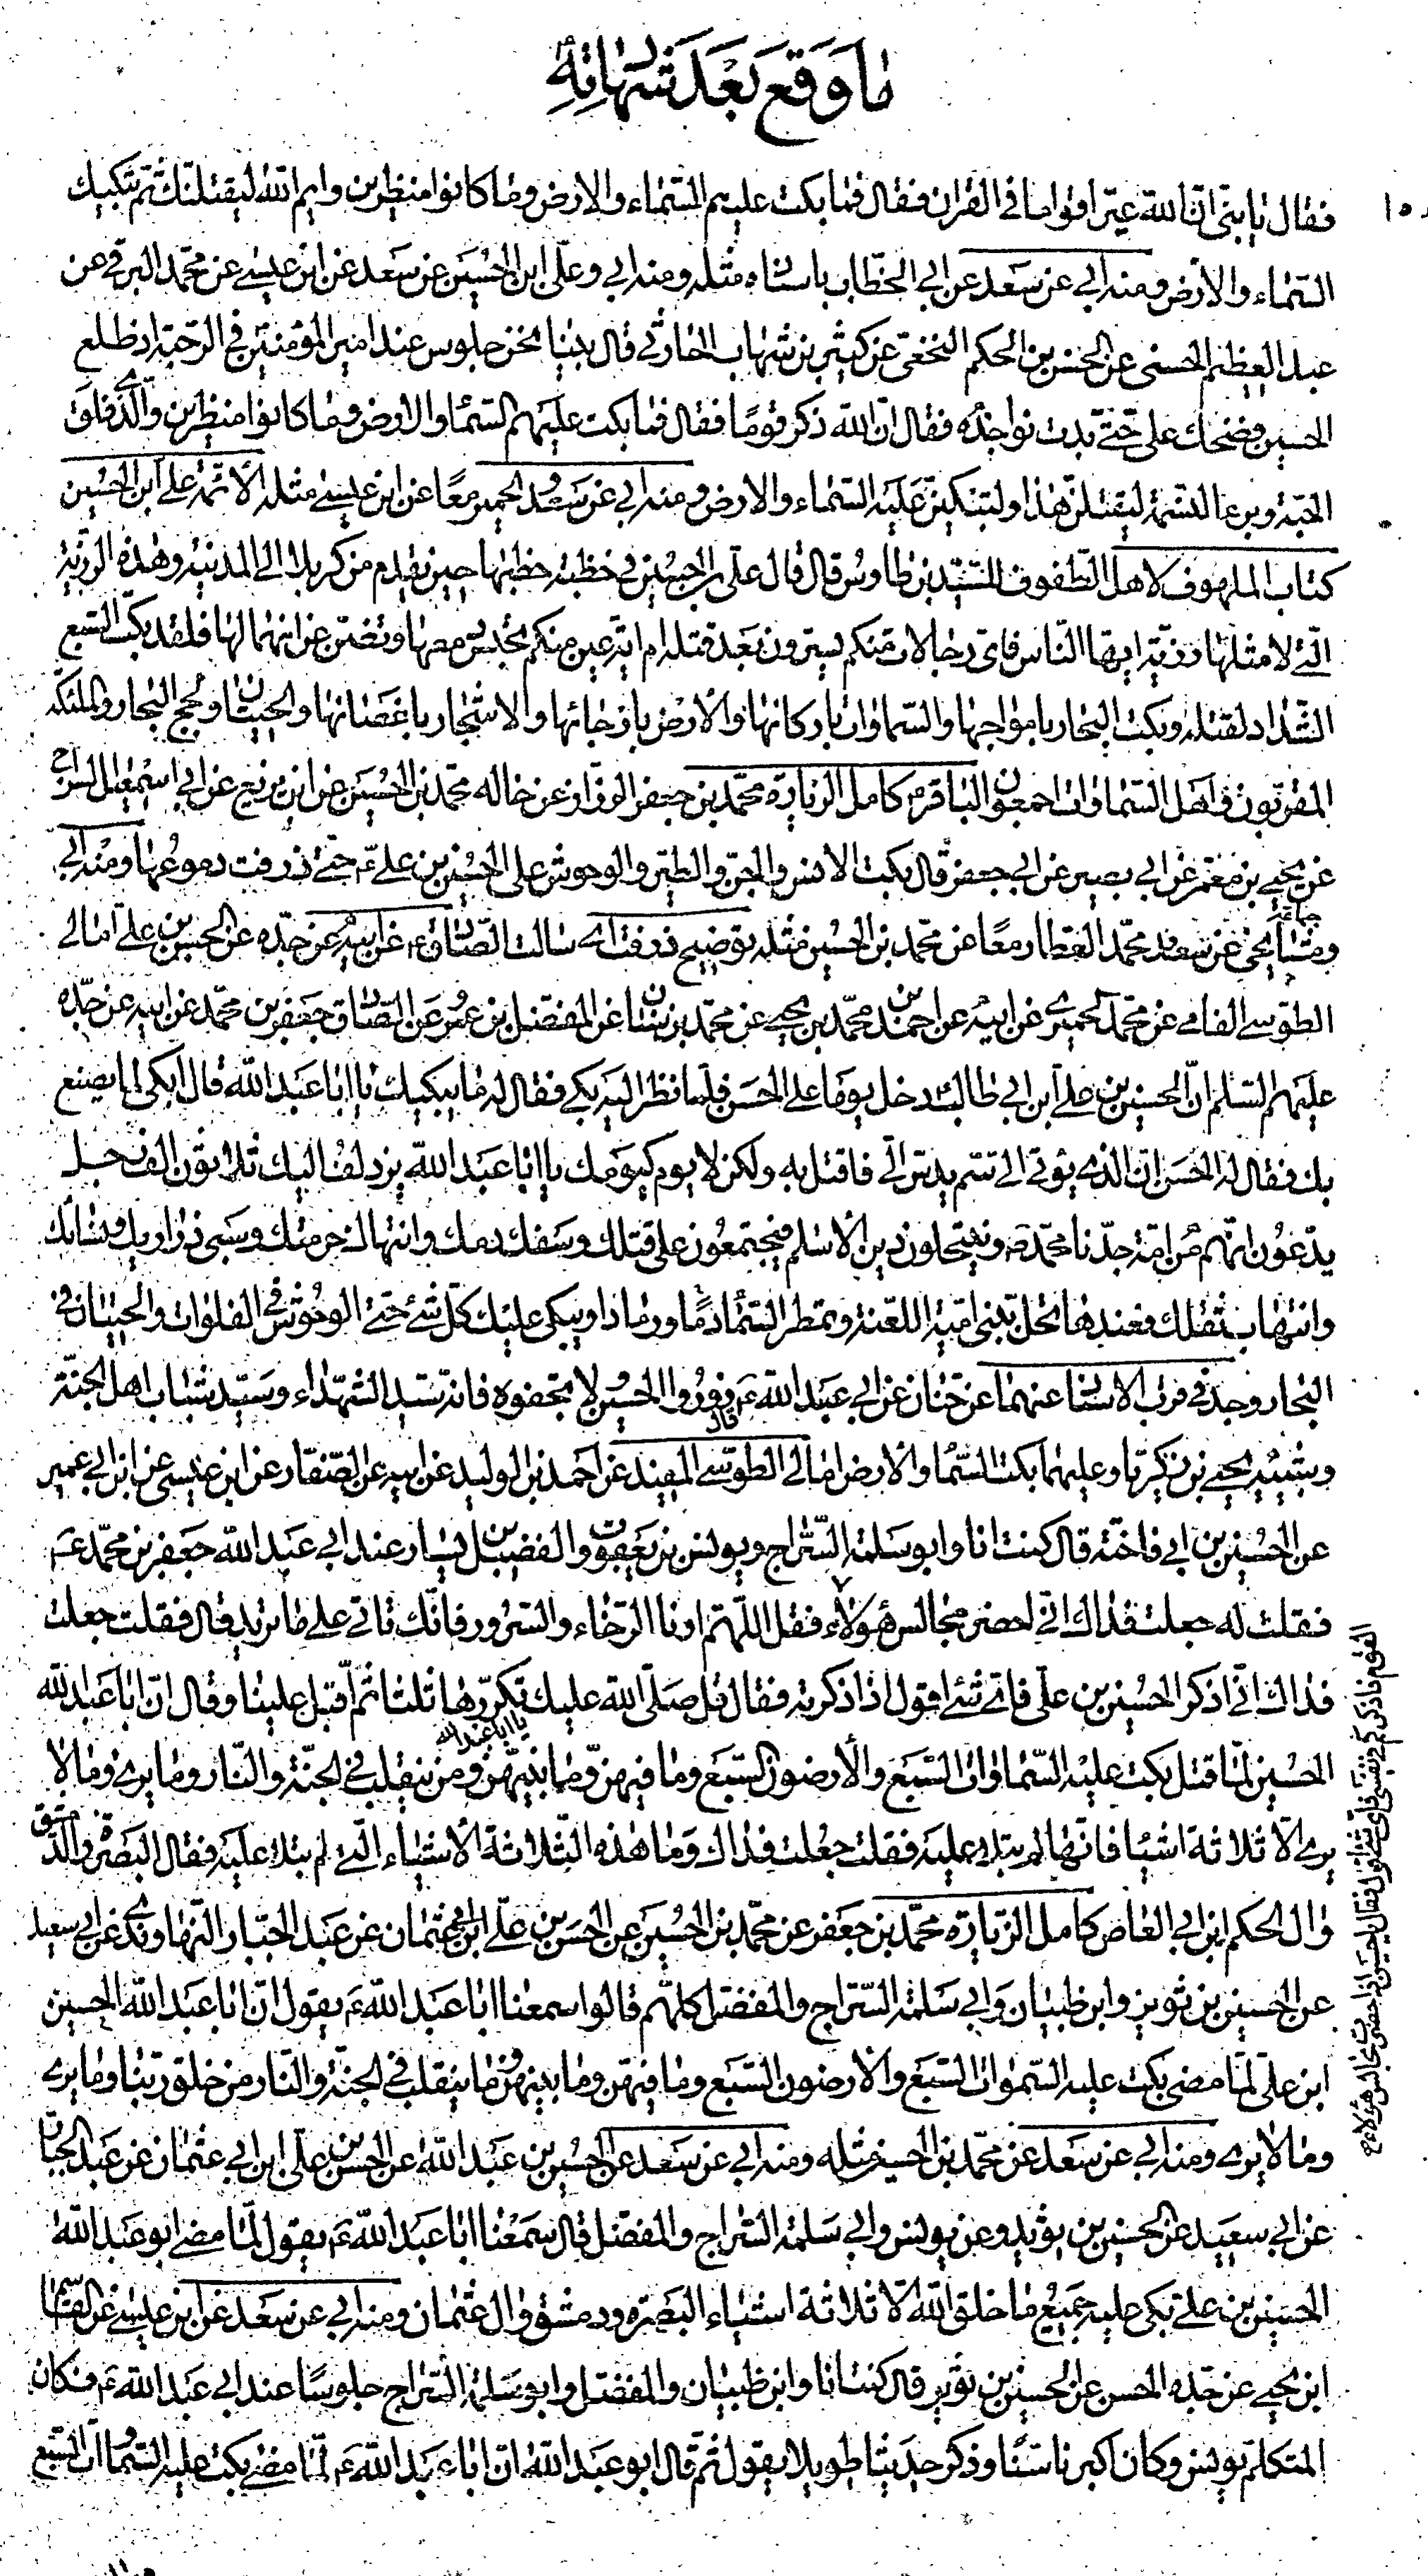 ما وقع بعد شهادته
فقال يا بنى ان الله عير اقواما فى القران فقال فما بكت عليهم السماء والارض وما كانوا منظرين وايم الله ليقتلنك ثم تبكيك
السماء والارض ومنه ابي عن سعد عن ابي الخطاب باسناده مثله ومنه ابي وعلى ابن الحسين عن سعد عن ابن عيسى عن محمد البرقى عن
عبد العظيم الحسنى عن الحسن بن الحكم النخعى عن كثير بن شهاب الحارثى قال بينا نحن جلوس عند امير المؤمنين فى الرحبة اذ طلع
الحسين فضحك على حتى بدت نواجذه فقال ان الله ذكر قوما فقال فما بكت عليهم السماء والارض وما كانوا منظرين والذى فلق
الحبة وبرء النسمة ليقتلن هذا ولتبكين عليه السماء والارض ومنه ابي عن سعد والحميرى معا عن ابن عيسى مثله الأئمة على ابن الحسين
كتاب الملهوف لاهل الطفوف للسيد بن طاوس قال قال على بن الحسين فى خطبة خطبها حين يقدم من كربلا الى المدينة وهذه الرزية
التى لا مثلها رزية ايها الناس فاى رجالات منكم يسرون بعد قتله ام اية عين منكم تحبس دمعها وتضن عن انهمالها فلقد بكت السبع
الشداد لقتله وبكت البحار بامواجها والسماوات باركانها والارض بارجائها والاشجار باغصانها والحيتان ولجج البحار والملئكة
المقربون واهل السماوات اجمعون الباقر م كامل الزيارة محمد بن جعفر الرزاز عن خاله محمد بن الحسين عن ابن بزيع عن ابي اسمعيل السراج
عن يحيى بن معمر عن ابي بصير عن ابي جعفر قال بكت الانس والجن والطير والوحوش على الحسين بن على ع حتى ذرفت دموعها ومنه ابي
وجماعة مشايخى عن سعد ومحمد العطار معا عن محمد بن الحسين مثله توضيح ذرفت اى سالت الصادق ع عن ابيه عن جده عن الحسن بن على امالى
الطوسى الفامى عن محمد الحميرى عن ابيه عن احمد بن محمد بن يحيى عن محمد بن سنان عن المفضل بن عمر عن الصادق جعفر بن محمد عن ابيه عن جده
عليهم السلم ان الحسين بن على ابن ابي طالب دخل يوما على الحسن فلما نظر اليه بكى فقال له ما يبكيك يا ابا عبد الله قال ابكى لما يصنع
بك فقال له الحسن ان الذى يؤتى الى سم يدس الى فاقتل به ولكن لا يوم كيومك يا ابا عبد الله يزدلف اليك ثلاثون الف رجل
يدعون انهم من امة جدنا محمد ص وينتحلون دين الاسلم فيجتمعون على قتلك وسفك دمك وانتهاك حرمتك وسبى ذراريك ونسائك
وانتهاب ثقلك فعندها تحل ببنى امية اللعنة وتمطر السماء دما ورمادا ويبكى عليك كل شئ حتى الوحوش فى الفلوات والحيتان فى
البحار وجد فى قرب الاسناد عنهما عن حنان عن ابي عبد الله ع قال زوروا الحسين ولا تجفوه فانه سيد الشهداء وسيد شباب اهل الجنة
وشبيه يحيى بن زكريا وعليهما بكت السماء والارض امالى الطوسى المفيد عن احمد بن الوليد عن ابيه عن الصفار عن ابن عيسى عن ابن ابي عمير
عن الحسين بن ابي فاختة قال كنت انا وابو سلمة السراج ويونس بن يعقوب والفضيل بن يسار عند ابي عبد الله جعفر بن محمد ع
فقلت له جعلت فداك انى احضر مجالس هؤلاء فقل اللهم ارنا الرخاء والسرور فانك تاتى على ما تريد قال فقلت جعلت
فداك انى اذكر الحسين بن على فاى شئ اقول اذا ذكرته فقال قل صلى الله عليك يا ابا عبد الله تكررها ثلثا ثم اقبل علينا وقال ان ابا عبد الله
الحسين لما قتل بكت عليه السماوات السبع والارضون السبع وما فيهن وما بينهن ومن يتقلب فى الجنة والنار وما يرى وما لا
يرى الا ثلاثة اشياء فانها لم تبك عليه فقلت جعلت فداك وما هذه الثلاثة الاشياء التى لم تبك عليه فقال البصرة والدمشق
وال الحكم ابن ابي العاص كامل الزيارة محمد بن جعفر عن محمد بن الحسين عن الحسن بن على ابن ابي عثمان عن عبد الجبار النهاوندى عن ابي سعيد
عن الحسين بن ثوير وابن ظبيان وابي سلمة السراج والمفضل كلهم قالوا سمعنا ابا عبد الله ع يقول ان ابا عبد الله الحسين
ابن على لما مضى بكت عليه السموات السبع والارضون السبع وما فيهن وما بينهن وما يتقلب فى الجنة والنار من خلق ربنا وما يرى
وما لا يرى ومنه ابي عن سعد عن محمد بن الحسين مثله ومنه ابي عن سعد عن الحسين بن عبد الله عن الحسن بن على ابن ابي عثمان عن عبد الجبار
عن ابي سعيد عن الحسين بن ثوير وعن يونس وابي سلمة السراج والمفضل قال سمعنا ابا عبد الله ع يقول لما مضى ابو عبد الله
الحسين بن على بكى عليه جميع ما خلق الله الا ثلاثة اشياء البصره ودمشق وال عثمان ومنه ابي عن سعد عن ابن عيسى عن القاسم
ابن يحيى عن جده الحسن عن الحسين بن ثوير قال كنت انا وابن ظبيان والمفضل وابو سلمة السراج جلوسا عند ابي عبد الله ع فكان
المتكلم يونس وكان اكبرنا سنا وذكر حديثا طويلا يقول ثم قال ابو عبد الله ان ابا عبد الله ع لما مضى بكت عليه السموات السبع
القوم فاذكركم فى نفسى فاى شئ اقول فقال يا حسين اذا حضرت مجالس هؤلاء